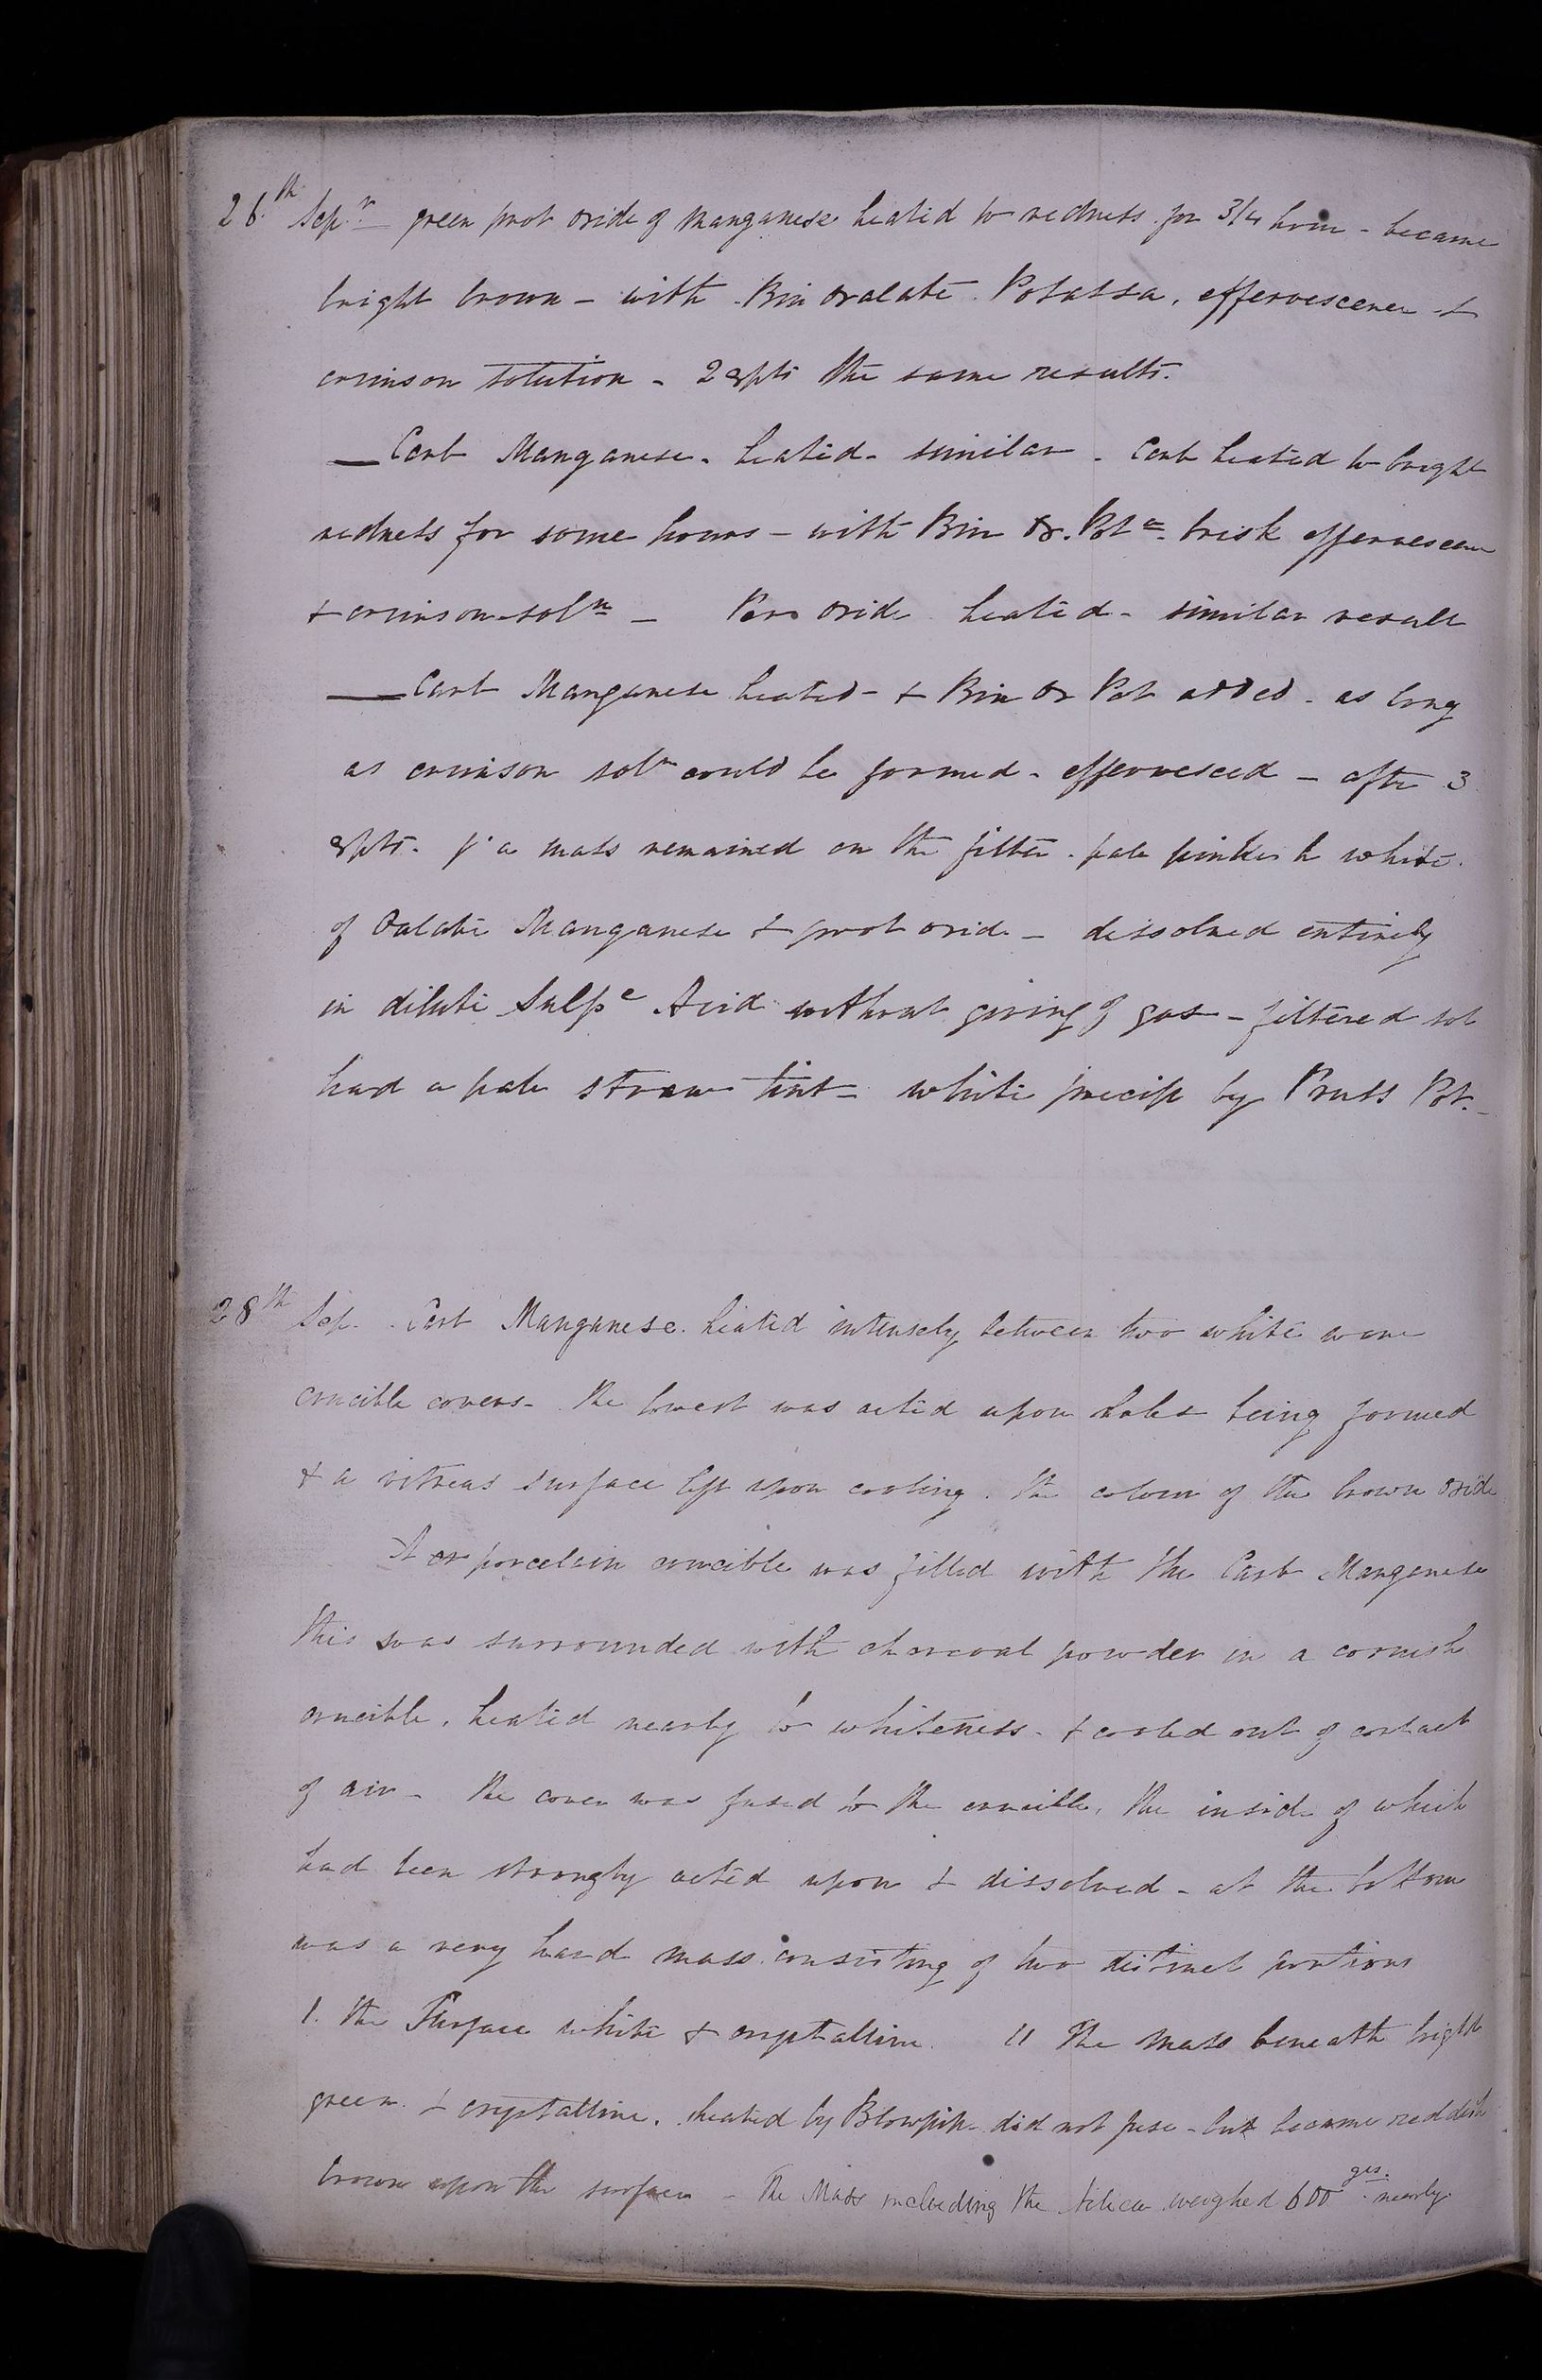 26.th Sepr green prot oxide of Manganese heated to redness for 3/4 hour - became
bright brown - with Bin oxalate Potassa, effervescence &
crimson solution - 2 expts the same results.
— Carb Manganese. heated - similar - Carb heated to bright
redness for some hours - with Bin Ox. Pota brisk effervescence
& crimson soln - Per oxide heated - similar result
— Carb Manganese heated - & Bin Ox Pot added - as long
as crimson soln could be formed - effervesced - after 3
expts. a mass remained on the filter - pale pinkish white.
of Oxalate Manganese & prot oxide - dissolved entirely
in dilute Sulpc Acid without giving of gas - filtered sol
had a pale straw tint - white precip by Pruss Pot.
28th Sep. Carb Manganese. heated intensely between two white ware
crucible covers - the lowest was acted upon holes being formed
& a vitreas surface left upon cooling. the colour of the brown oxide
A porcelain crucible was filled with the Carb Manganese
this was surrounded with charcoal powder in a cornish
crucible, heated nearly to whiteness - & cooled out of contact
of air - the cover was fused to the crucible, the inside of which
had been strongly acted upon & dissolved - at the bottom
was a very hard mass consisting of two distinct portions
1. the Surface white & crystalline. 11 The mass beneath bright
green & crystalline. heated by Blowpipe did not fuse - but became reddish
brown upon the surface - The Mass including the Silica weighed 600 grs. nearly.